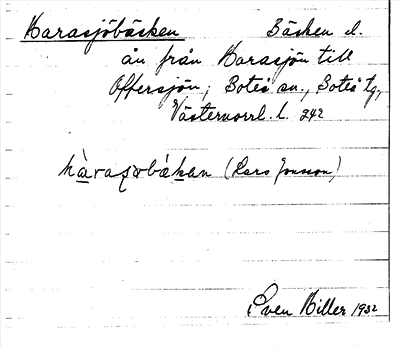 Harasjöbäcken Bäcken el.
ån från Harasjön till
Offersjön; Boteå sn., Boteå tg,
Västernorrl. l. 242
(Lars Jonsson)
Sven Hiller 1932